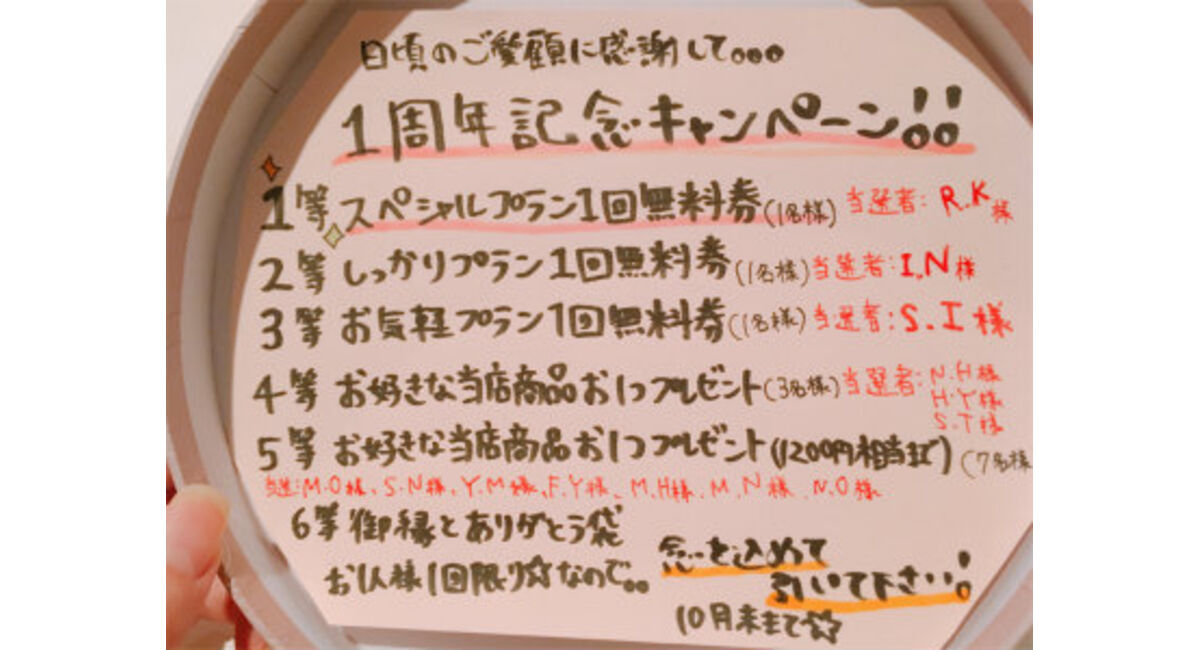 日頃のご愛顧に感謝して。。。
1周年記念キャンペーン!!
1等 スペシャルプラン1回無料券(1名様) 当選者:R.K様
2等 しっかりプラン1回無料券(1名様) 当選者:I.N様
3等 お気軽プラン1回無料券(1名様) 当選者:S.I様
4等 お好きな当店商品お1つプレゼント(3名様) 当選者:N.H様
H.Y様
S.T様
5等 お好きな当店商品お1つプレゼント(1200円相当まで)(7名様
当選:M.O様、S.N様、Y.M様、F.Y様、M.H様、M.N様、N.O様
6等 御縁とありがとう袋
お1人様1回限り☆なので。。
念を込めて
引いて下さい!
10月末まで☆